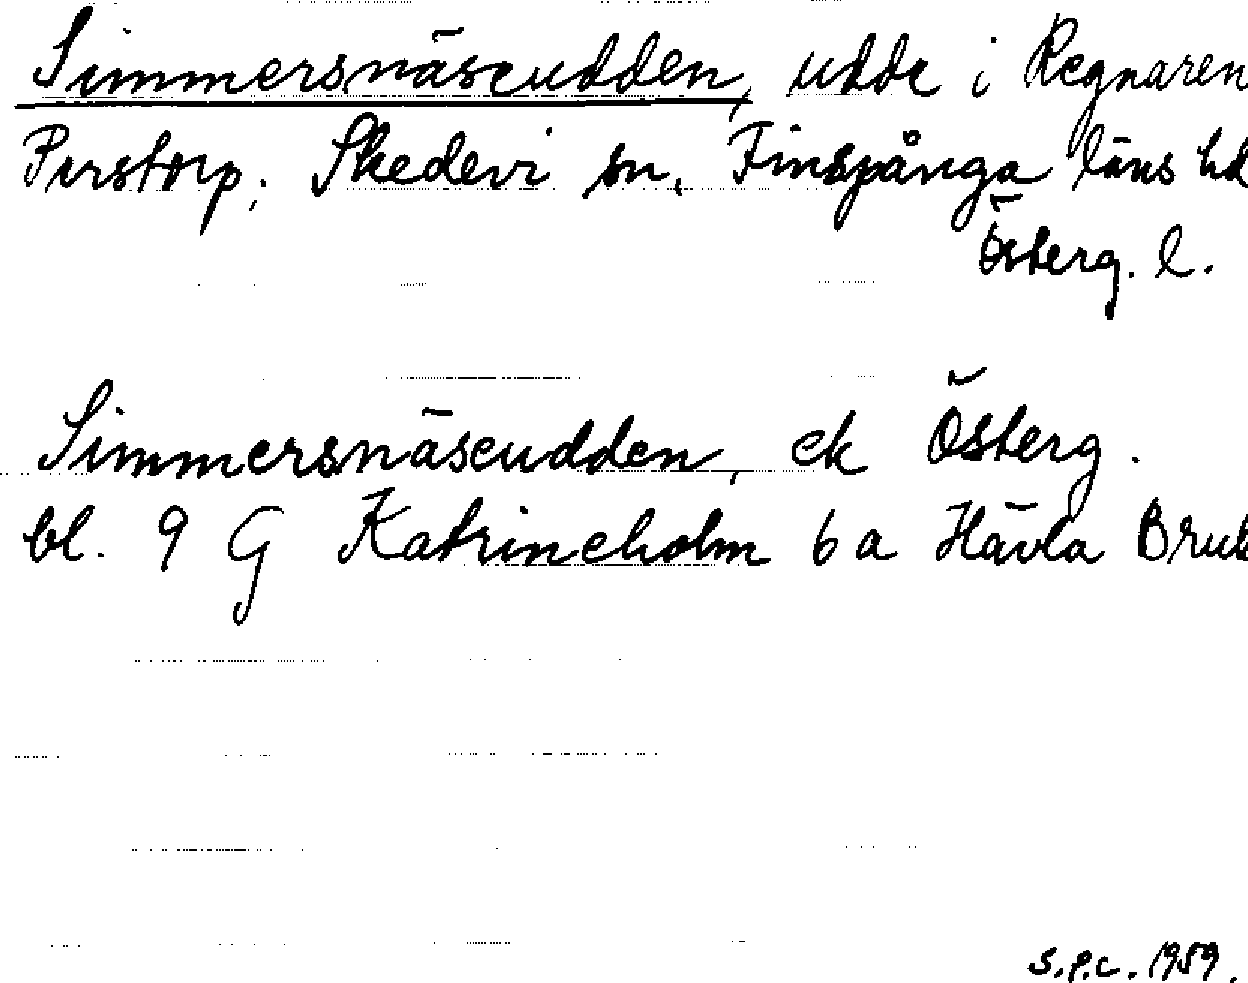 Simmersnäseudden, udde i Regnaren
Perstorp, Skedevi sn, Finspånga läns hd
Österg. l.
Simmersnäseudden, ek Österg.
bl. 9 G Katrineholm 6 a Hävla Bruk
S.P.C. 1959.